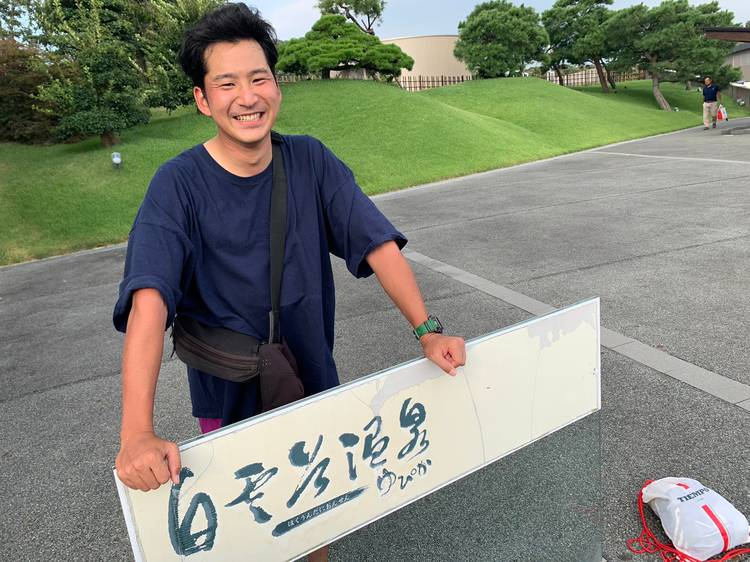 白雲谷温泉
はくうんだにおんせん
ゆぴか
TIEMPO